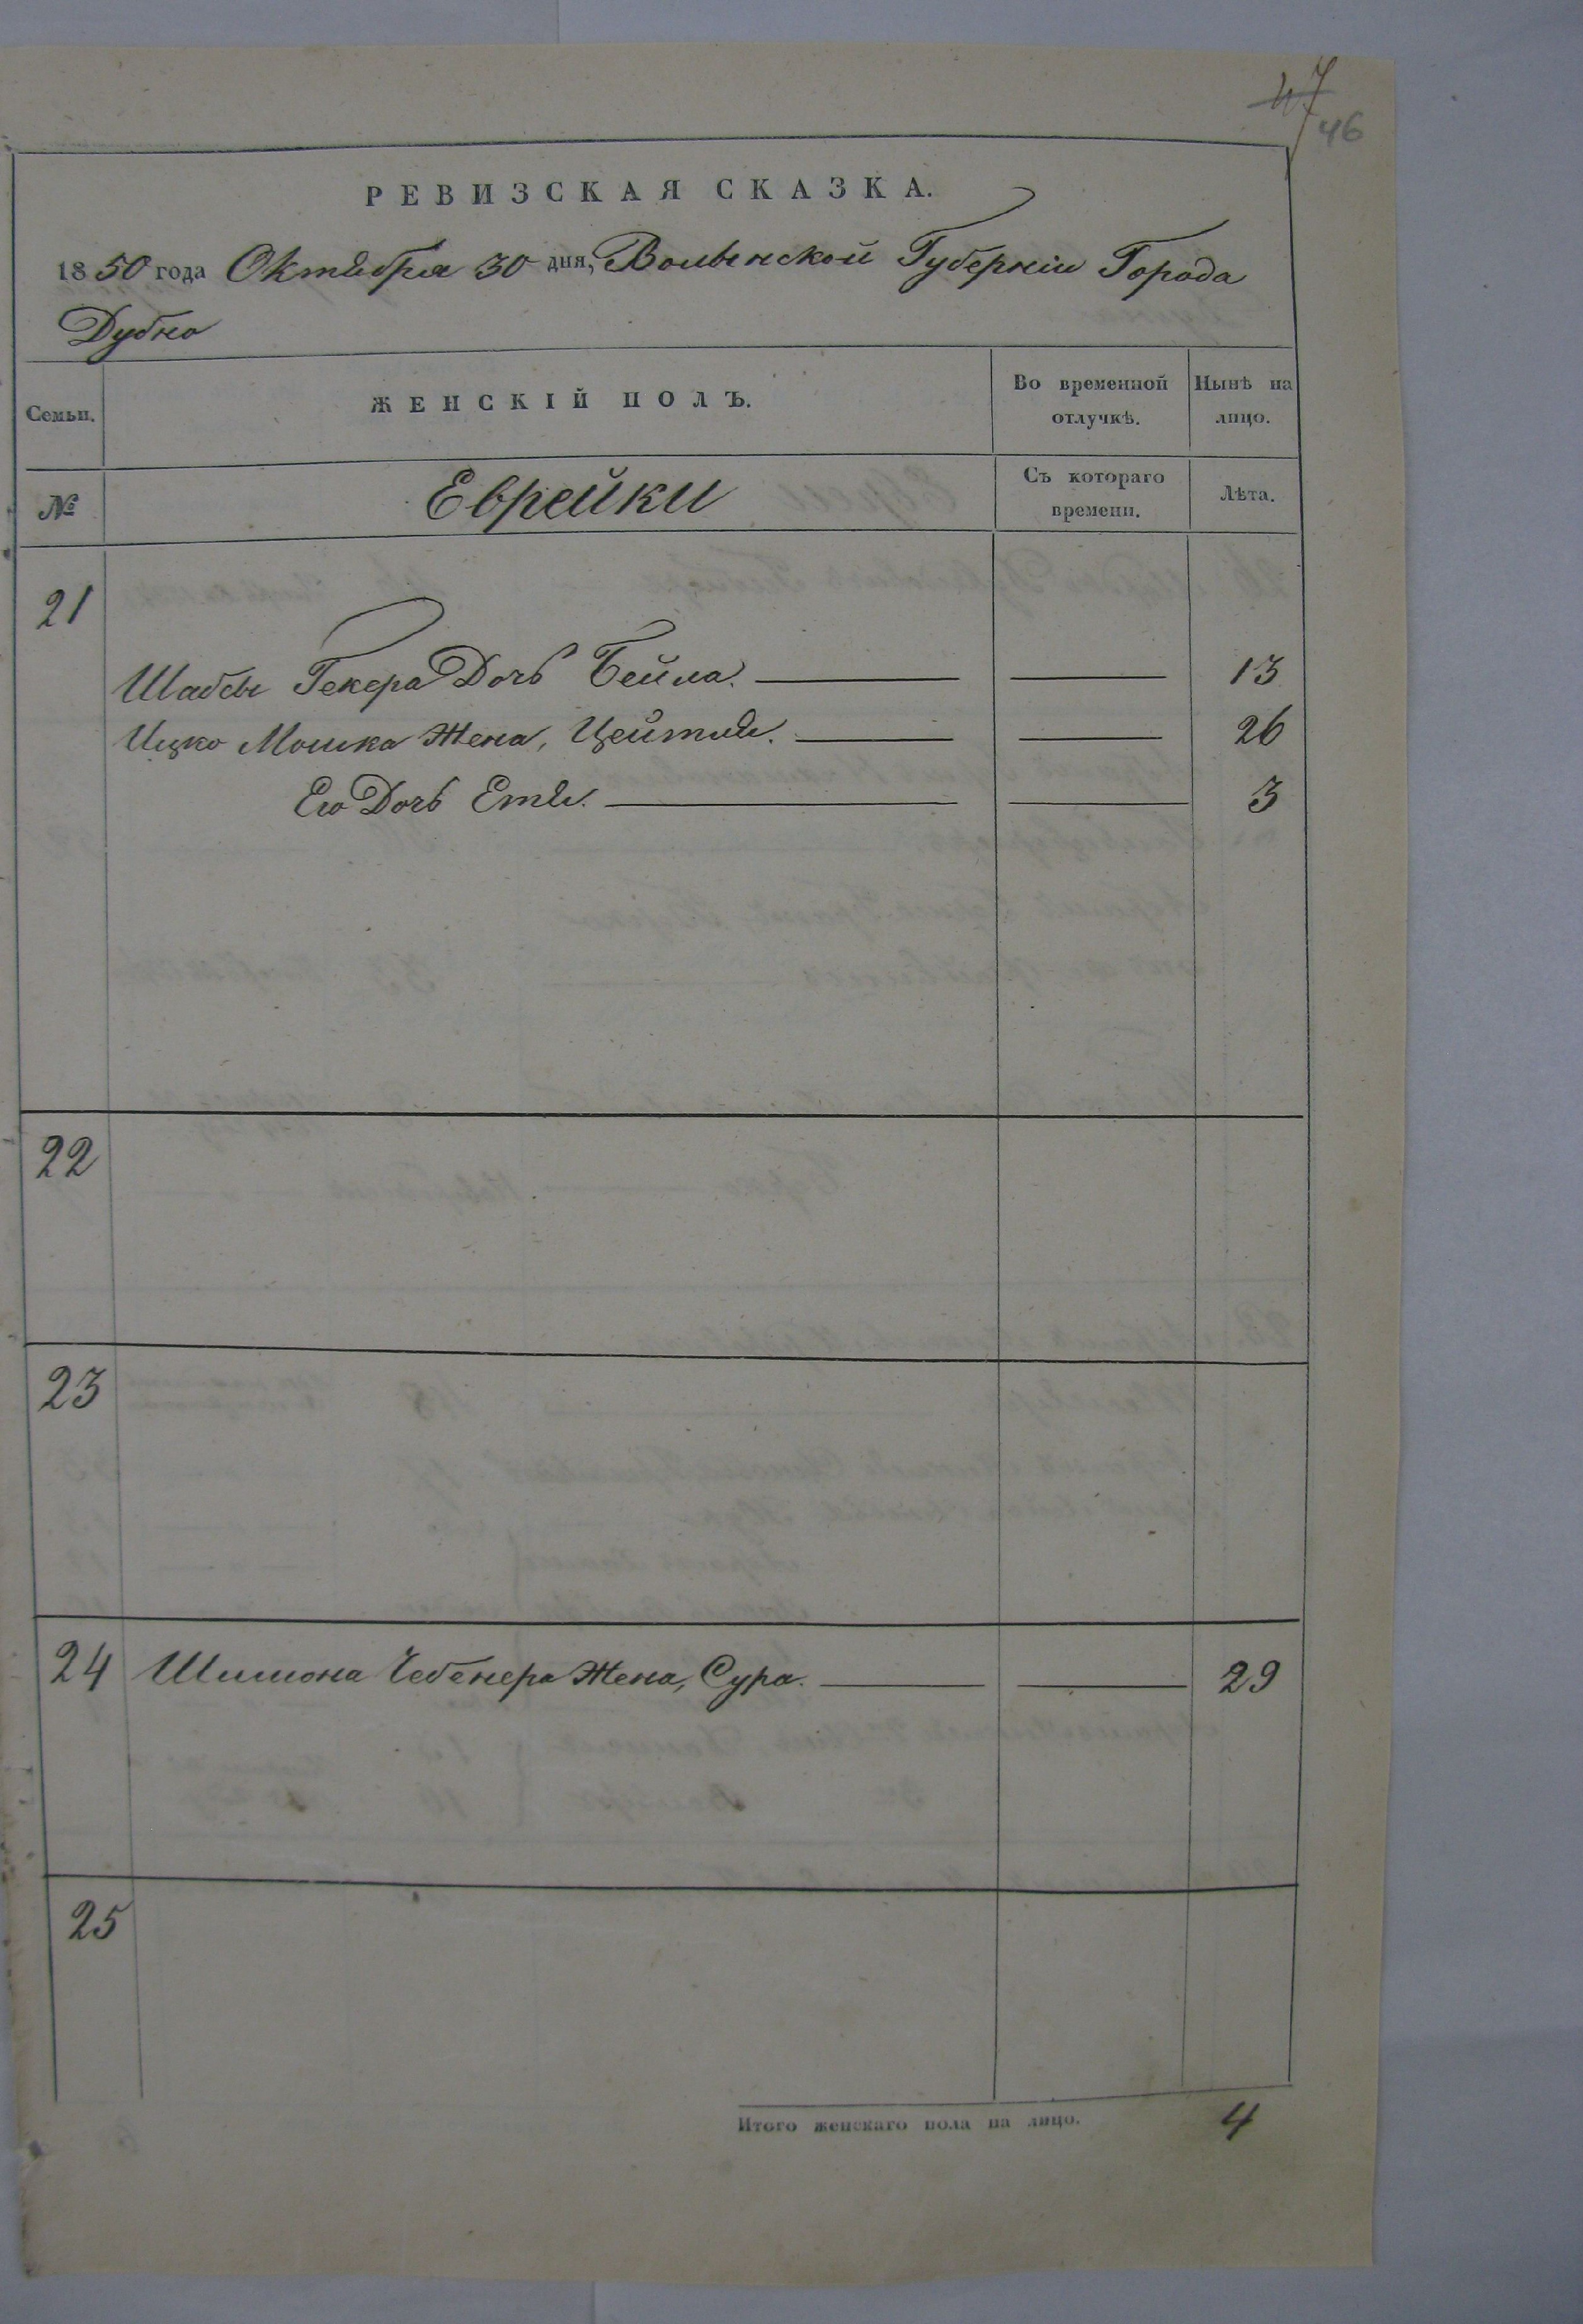 47
46
РЕВИЗСКАЯ СКАЗКА.
1850 года Октября 30 дня, Волынской Губерніи Города
Дубно
Семьи. ЖЕНСКІЙ ПОЛЪ. Во временной отлучкѣ. Нынѣ на лицо.
№ Еврейки Съ котораго времени. Лѣта.
21
Шабсы Гекера Дочь Бейла. 13
Ицко Мошка Жена, Цейтля. 26
Его Дочь Етля. 3
22
23
24 Шимона Чебенера Жена, Сура. 29
25
Итого женскаго пола на лицо. 4